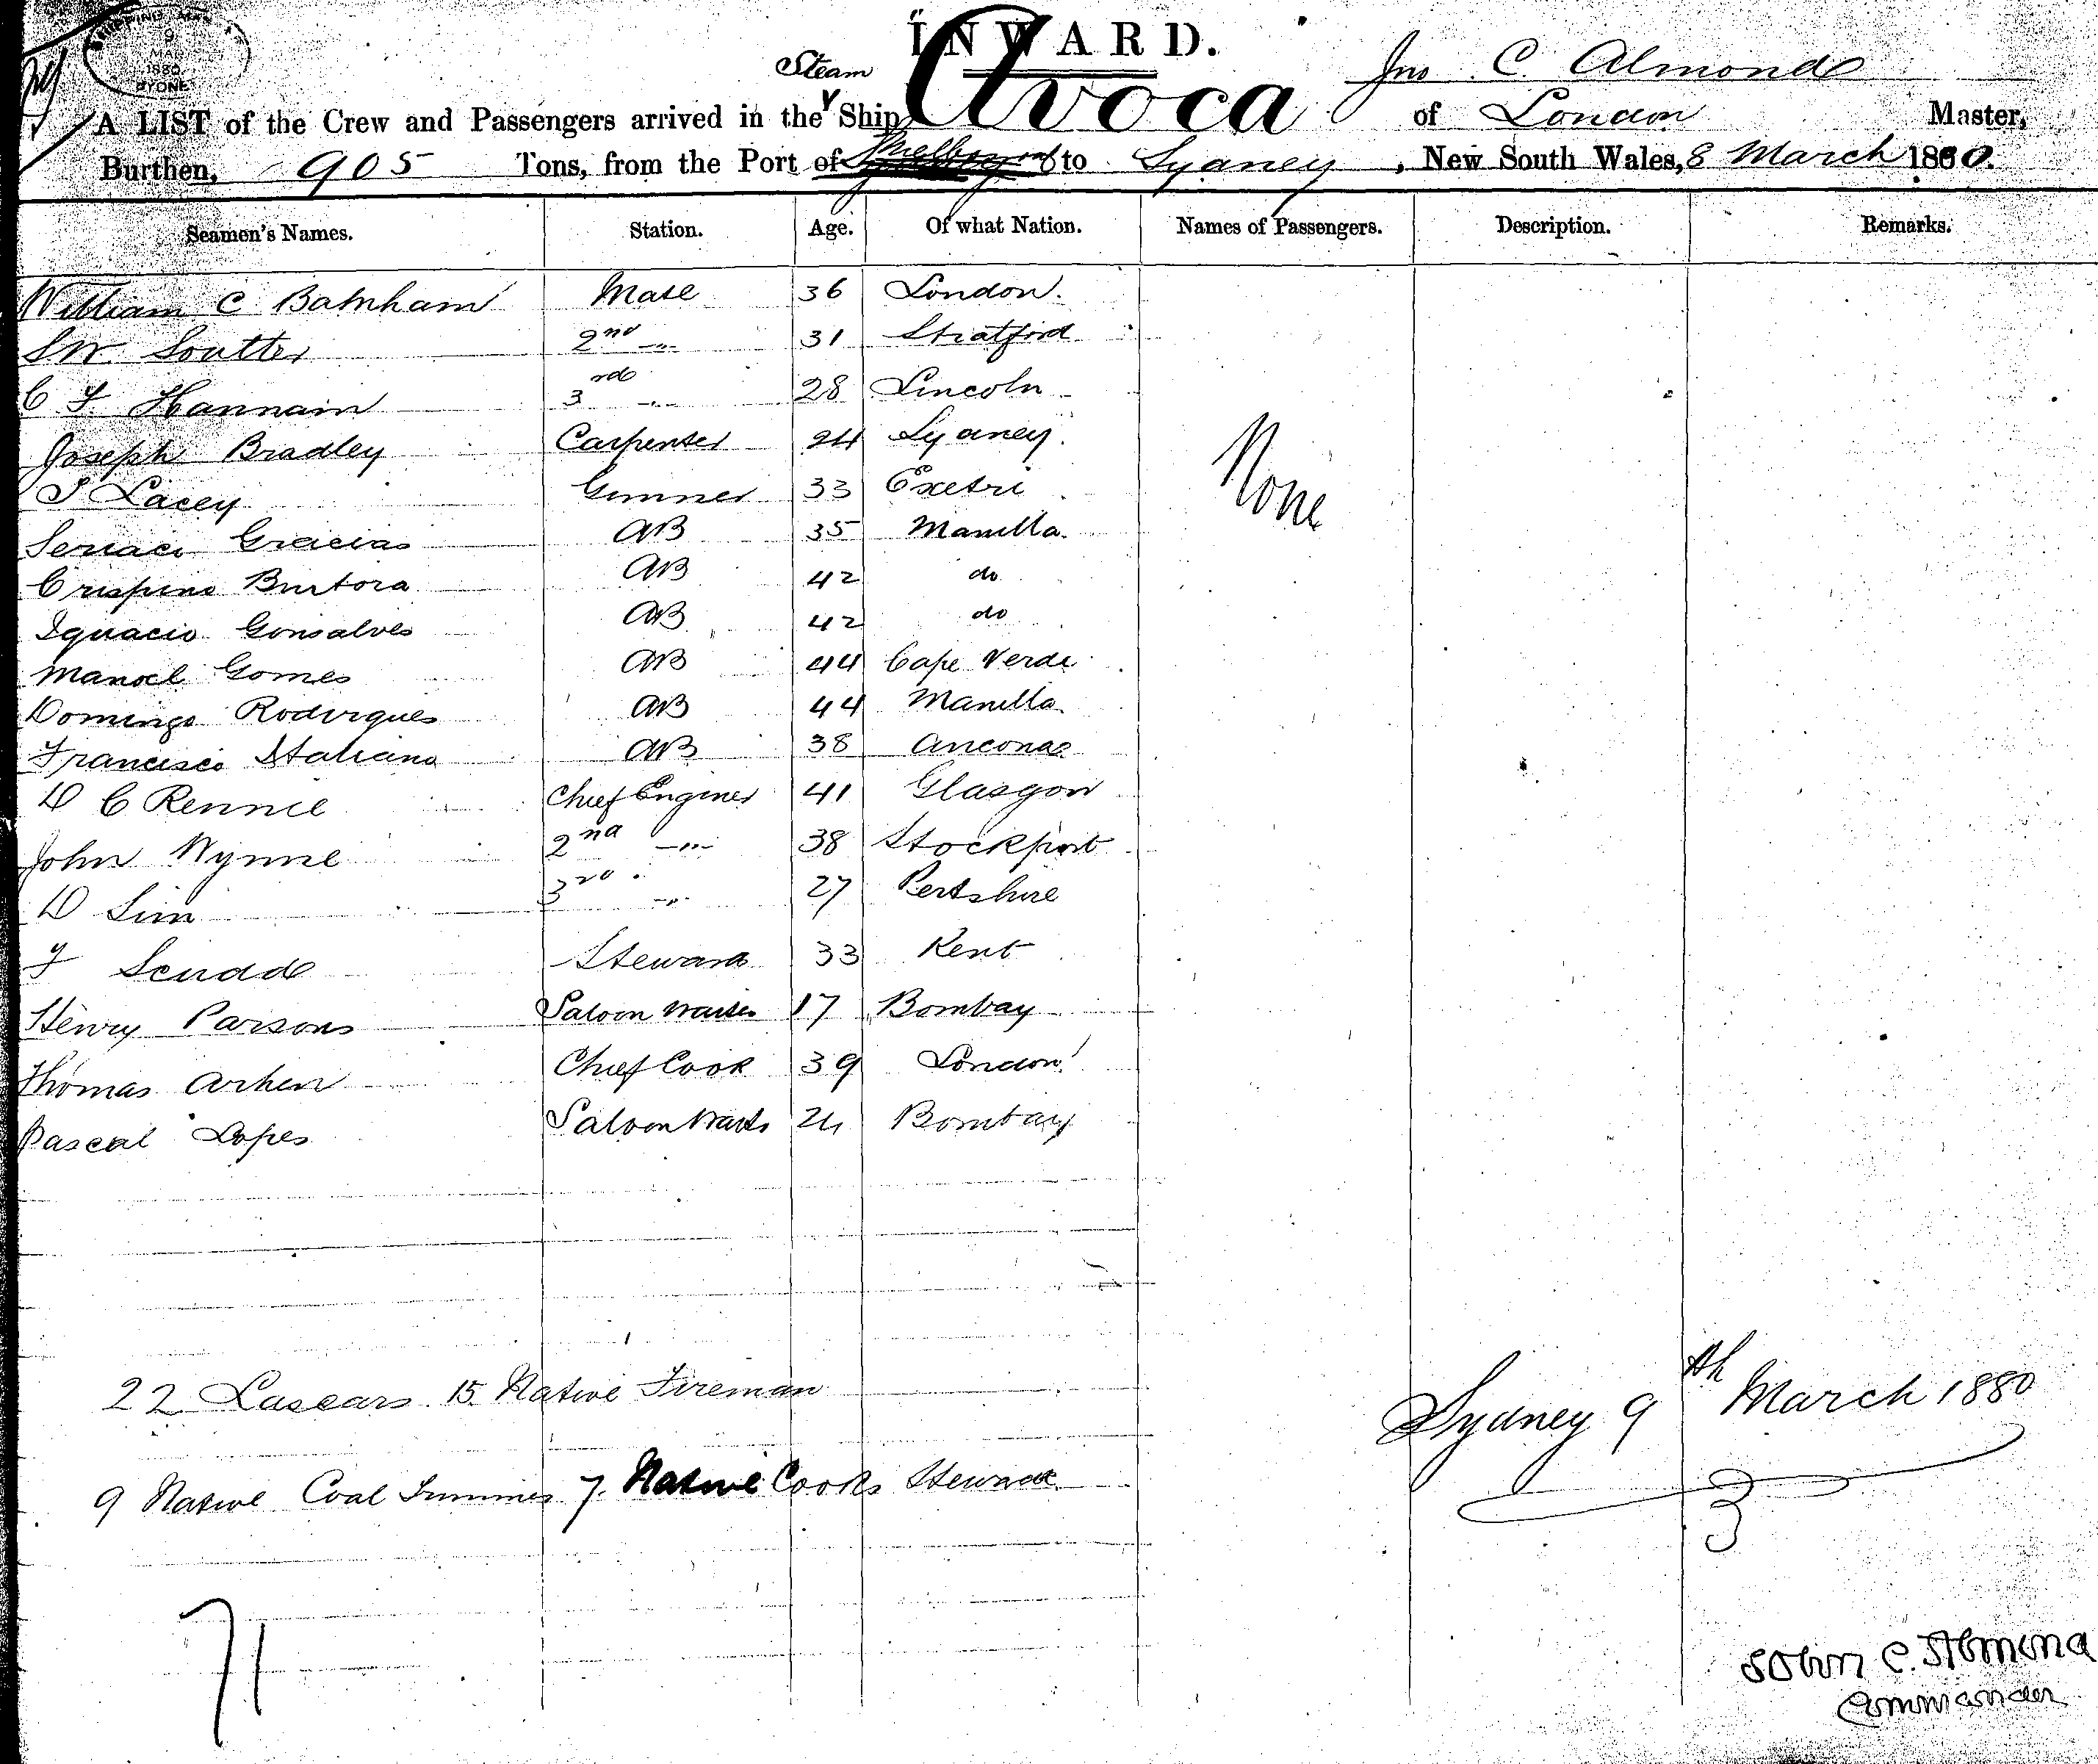 SHIPPING MAS
9
MAR
1880
SYDNEY
INWARD.
Jno C. Almond
A LIST of the Crew and Passengers arrived in the Steam Ship Avoca of London Master,
Burthen, 905 Tons, from the Port of to Sydney, New South Wales, 8 March 1880.
Seamen's Names. Station. Age. Of what Nation. Names of Passengers. Description. Remarks.
William C Mate 36 London.
Soutter 2nd -"- 31 Stratford
C F Hannam 3rd -"- 28 Lincoln
Joseph Bradley Carpenter 24 Sydney
Lacey Gunner 33 Exeter
None
Gracias AB 35 Manilla
Crispino AB 42 do
Ignacio Gonsalves AB 42 do
Manoel Gomes AB 44 Cape Verde
Domingo Rodrigues AB 44 Manilla
Francisco Italiano AB 38 Ancona
D C Rennie Chief Engineer 41 Glasgow
John Wynne 2nd -"- 38 Stockport
D Sim 3rd -"- 27 Pertshire
F Steward 33 Kent
Henry Parsons Saloon Waiter 17 Bombay
Thomas Chief Cook 39 London
Pascal Lopes Saloon Waiter 24 Bombay
22 Lascars 15 Native Fireman
Sydney 9th March 1880
9 Native Coal Trimmers 7. Native Cooks Steward
71
John C. Almond
Commander